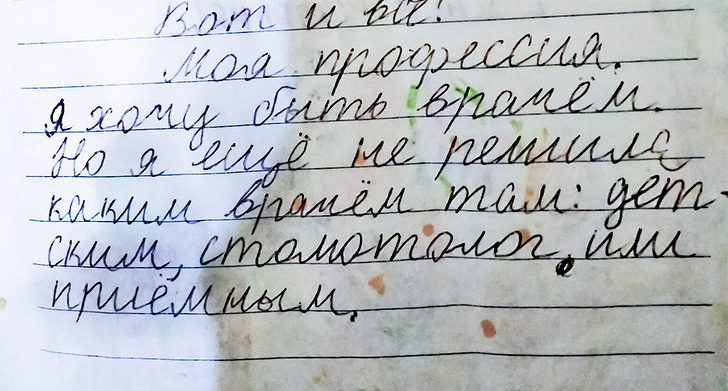 Вот и всё!
Моя профессия.
Я хочу быть врачём.
Но я ещё не решила
каким врачём там: дет-
ским, стомотолог, или
приёмным.